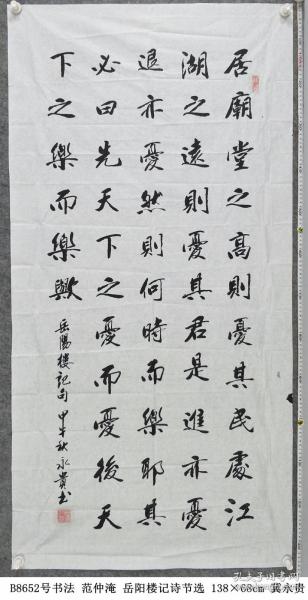 居廟堂之高則憂其民處江
湖之遠則憂其君是進亦憂
退亦憂然則何時而樂耶其
必曰先天下之憂而憂後天
下之樂而樂歟
岳陽樓記句 甲午秋永貴书
B8652号书法 范仲淹 岳阳楼记诗节选 138×68cm 冀永贵